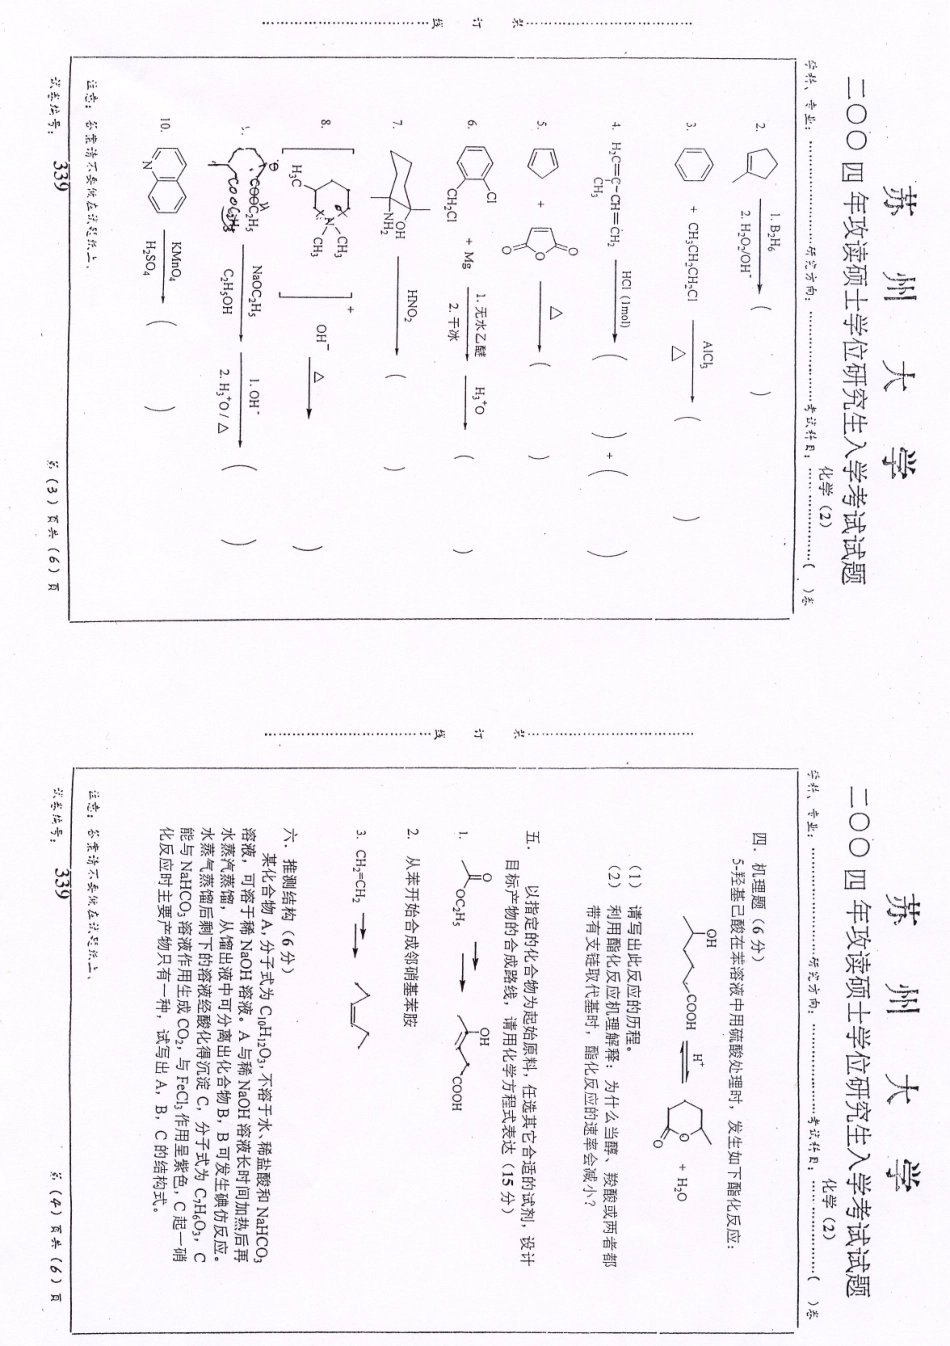 苏 州 大 学
二〇〇四年攻读硕士学位研究生入学考试试题
化学（2）
学科、专业：………………研究方向：………………考试科目：………………（ ）卷
2.
1. B2H6
2. H2O2/OH-
( )
3.
+ CH3CH2CH2Cl
AlCl3
△
( )
4.
H2C=C-CH=CH2
CH3
HCl (1mol)
( ) + ( )
5.
+
O
O
O
△
( )
6.
Cl
CH2Cl
+ Mg
1. 无水乙醚
2. 干冰
H3+O
( )
7.
OH
NH2
HNO2
( )
8.
H3C
N
CH3
CH3
+
OH-
△
)
COOC2H5
COOC2H5
NaOC2H5
C2H5OH
1. OH-
2. H3+O / △
( )
10.
N
KMnO4
H2SO4
( )
注意：答案请不要做在试题纸上。
试卷编号： 339
第（3）页共（6）页
装 订 线
苏 州 大 学
二〇〇四年攻读硕士学位研究生入学考试试题
化学（2）
学科、专业：………………研究方向：………………考试科目：………………（ ）卷
四．机理题（6 分）
5-羟基己酸在苯溶液中用硫酸处理时，发生如下酯化反应：
OH
COOH
H+
O
O
+ H2O
（1） 请写出此反应的历程。
（2） 利用酯化反应机理解释：为什么当醇、羧酸或两者都
带有支链取代基时，酯化反应的速率会减小？
五． 以指定的化合物为起始原料，任选其它合适的试剂，设计
目标产物的合成路线，请用化学方程式表达（15 分）
1.
O
OC2H5
OH
COOH
2. 从苯开始合成邻硝基苯胺
3. CH2=CH2
六．推测结构（6 分）
某化合物 A, 分子式为 C10H12O3, 不溶于水、稀盐酸和 NaHCO3
溶液，可溶于稀 NaOH 溶液。A 与稀 NaOH 溶液长时间加热后再
水蒸汽蒸馏，从馏出液中可分离出化合物 B，B 可发生碘仿反应。
水蒸气蒸馏后剩下的溶液经酸化得沉淀 C，分子式为 C7H6O3，C
能与 NaHCO3 溶液作用生成 CO2，与 FeCl3 作用呈紫色，C 起一硝
化反应时主要产物只有一种，试写出 A，B，C 的结构式。
注意：答案请不要做在试题纸上。
试卷编号： 339
第（4）页共（6）页
装 订 线